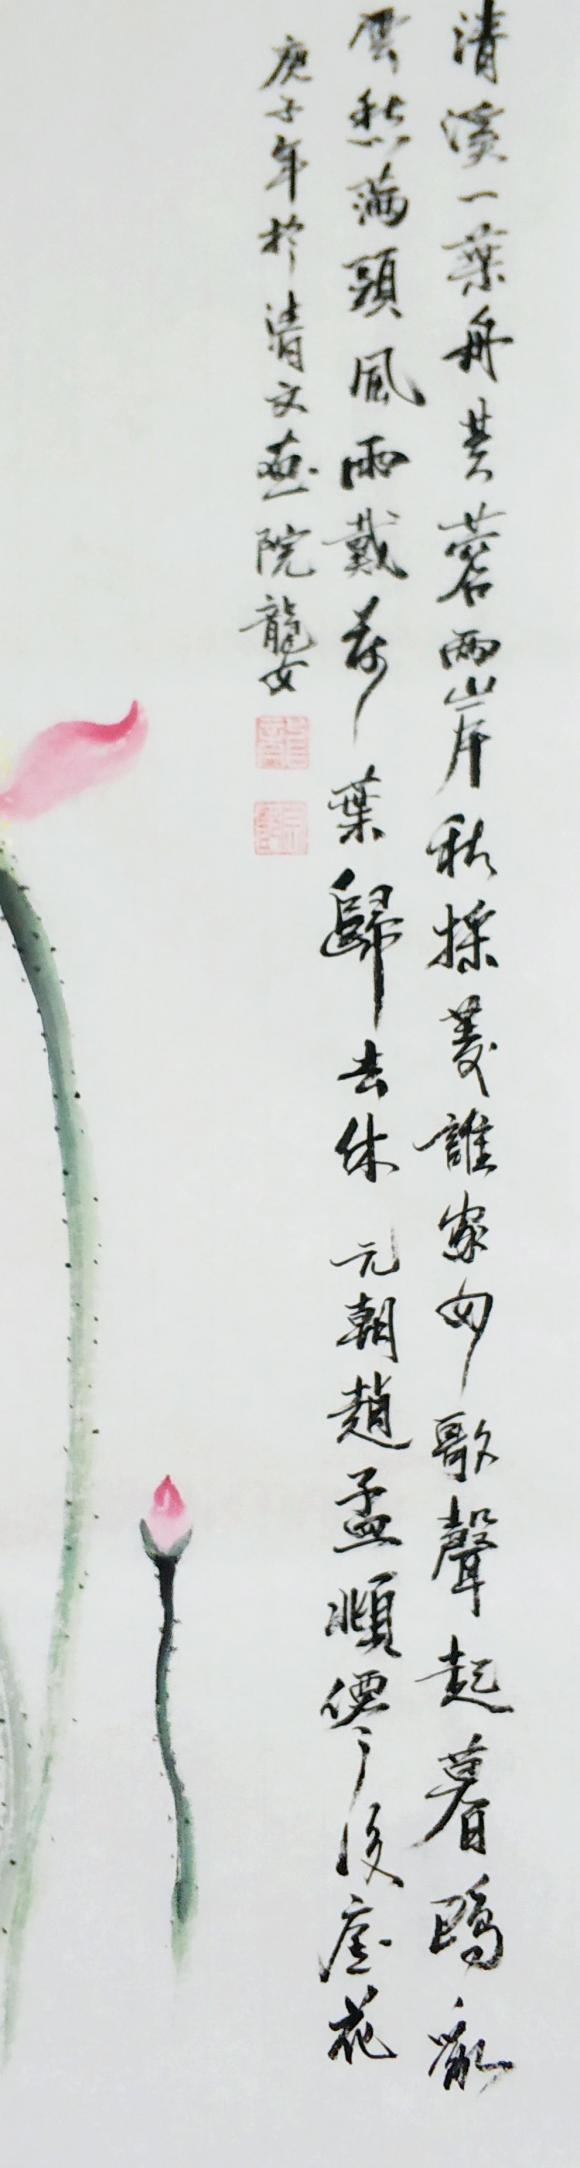 清溪一葉舟芙蓉兩岸秋採菱誰家女歌聲起暮鷗亂
雲愁滿頭風雨戴荷葉歸去休 元朝趙孟頫後庭花
庚子年於清文畫院龍女